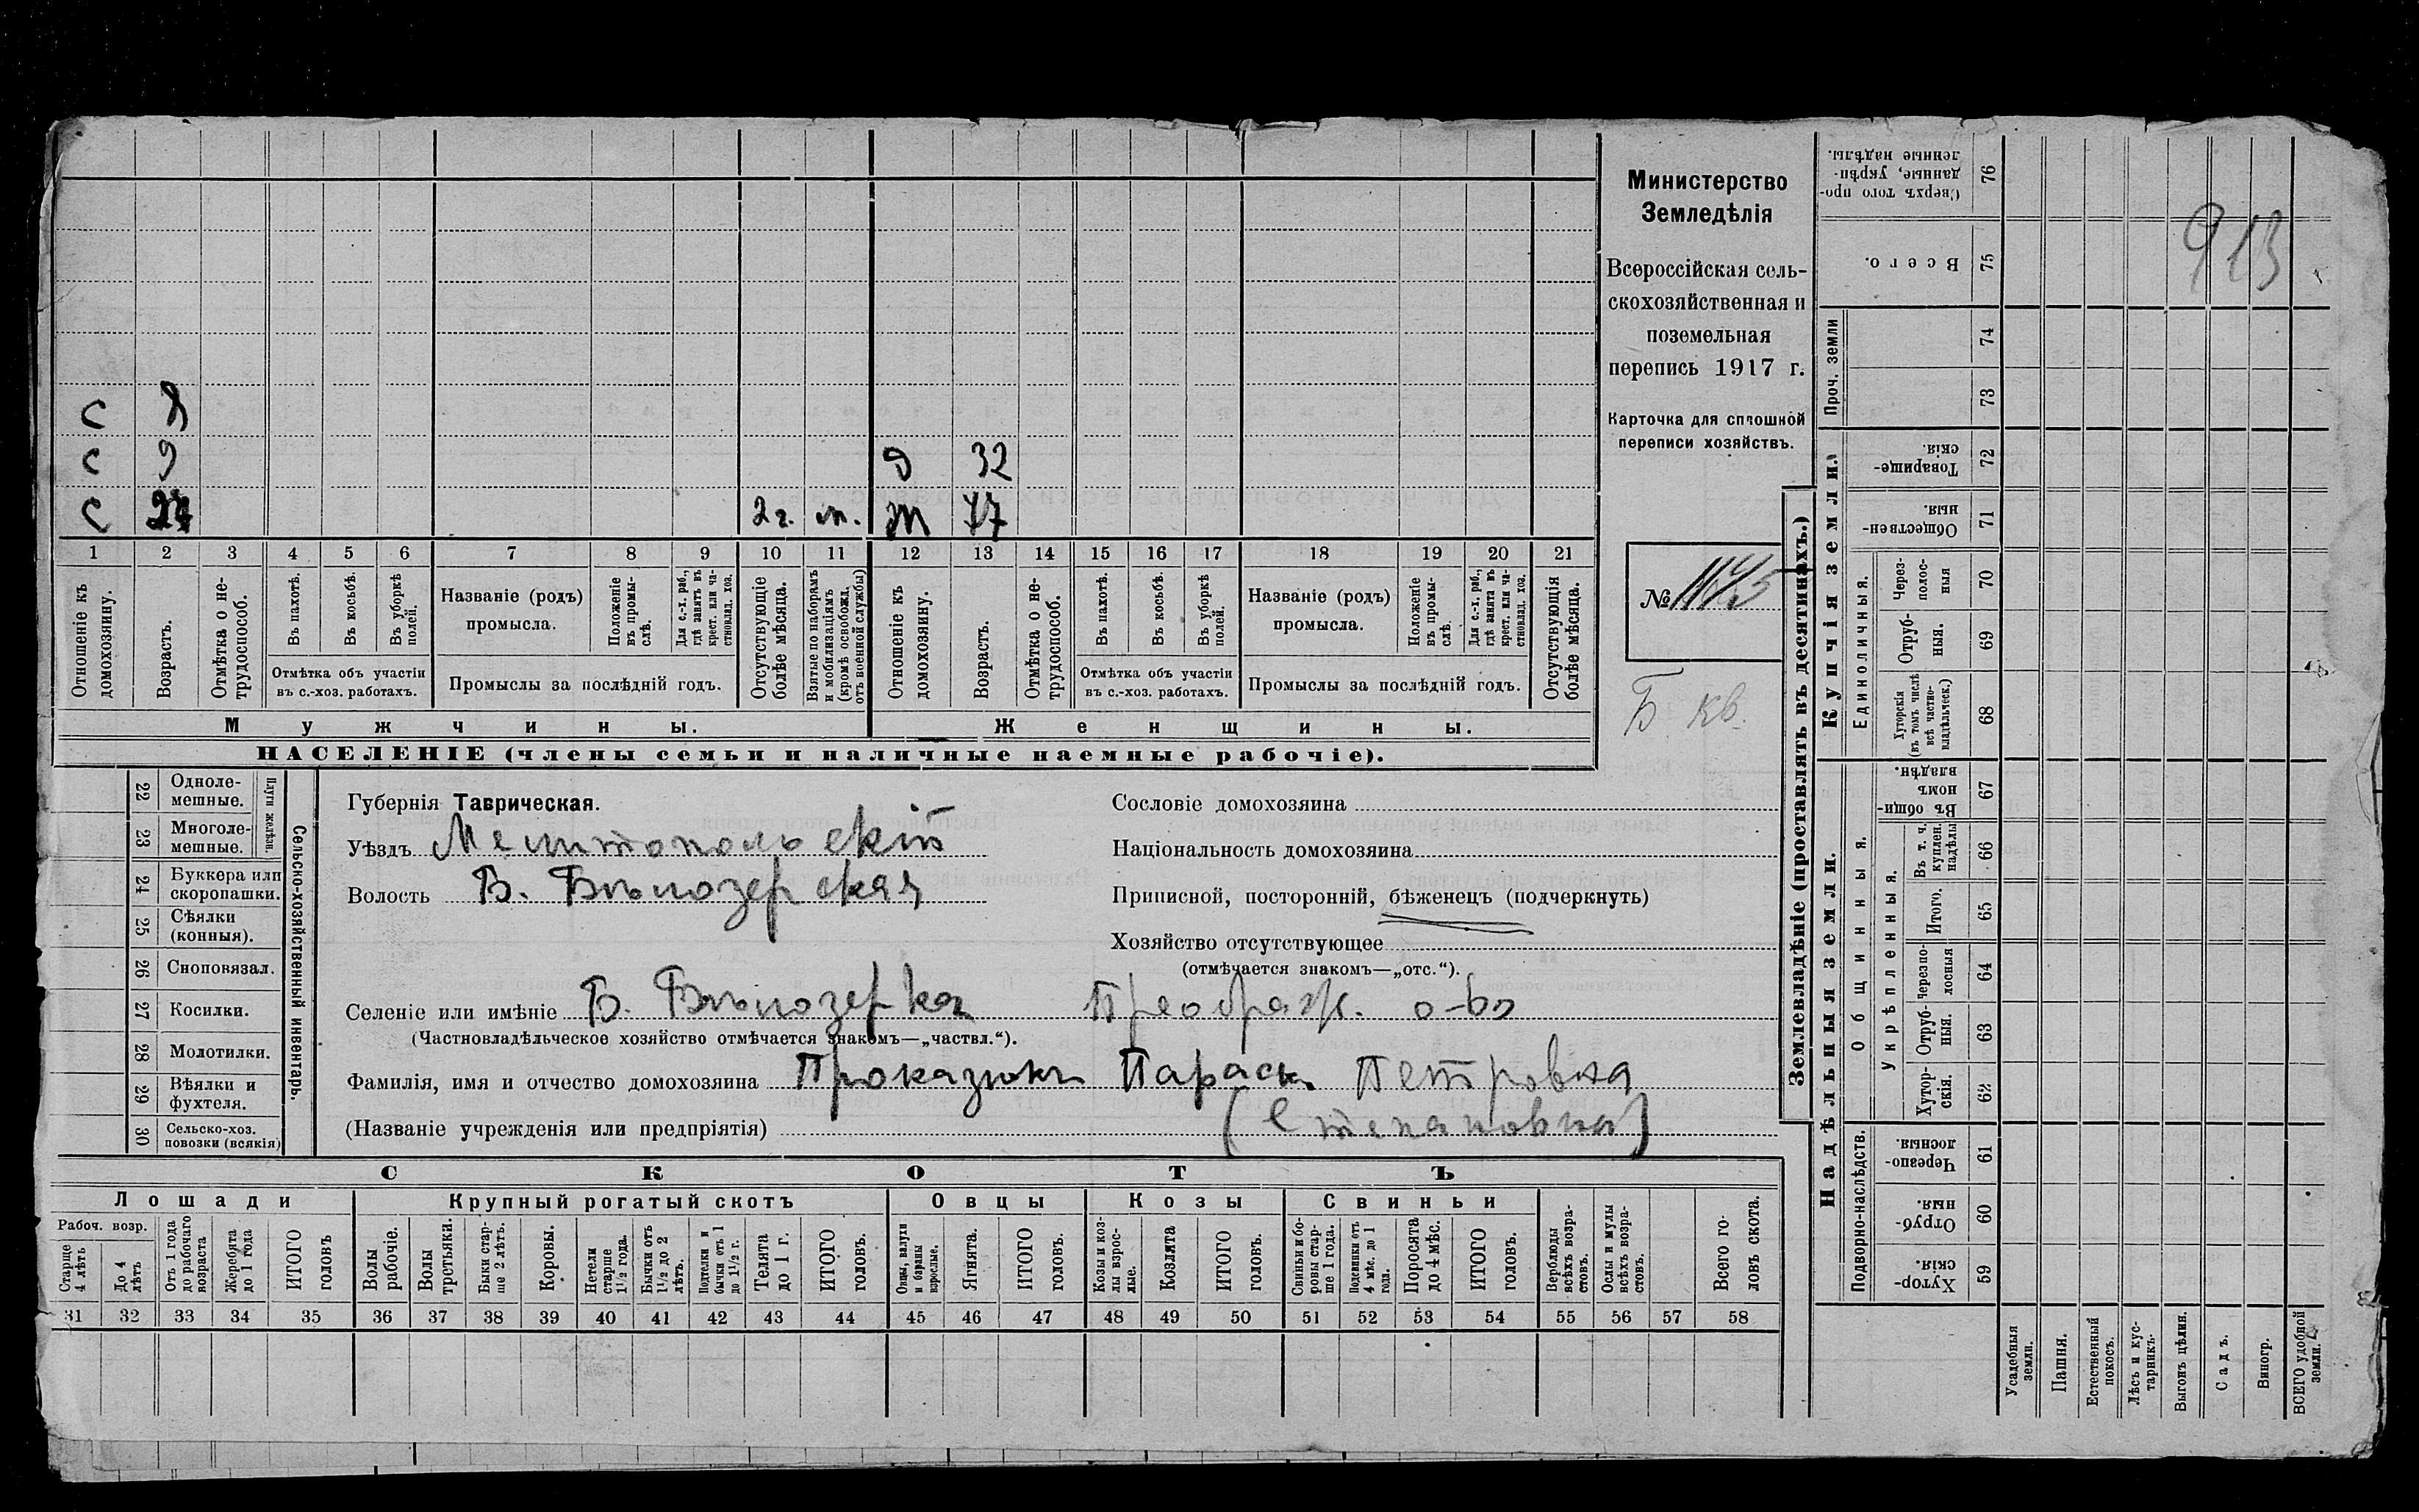 Министерство
Земледѣлія
Всероссійская сель-
скохозяйственная и
поземельная
перепись 1917 г.
Карточка для сплошной
переписи хозяйствъ.
№
Б кв.
913
С 8
С 9 д 32
С 2г. м. ж 47
1 2 3 4 5 6 7 8 9 10 11 12 13 14 15 16 17 18 19 20 21
Отношеніе къ домохозяину.
Возрастъ.
Отмѣтка о не-трудоспособ.
Въ пахотѣ.
Въ косьбѣ.
Въ уборкѣ полей.
Отмѣтка объ участіи въ с.-хоз. работахъ.
Названіе (родъ) промысла.
Положеніе въ промы-слѣ.
Для с.-х. раб., гдѣ занятъ въ крест. или ча-стновлад. хоз.
Промыслы за послѣдній годъ.
Отсутствующіе болѣе мѣсяца.
Взятые по наборамъ и мобилизаціямъ (кромѣ освобожд. отъ военной службы)
Отношеніе къ домохозяину.
Возрастъ.
Отмѣтка о не-трудоспособ.
Въ пахотѣ.
Въ косьбѣ.
Въ уборкѣ полей.
Отмѣтка объ участіи въ с.-хоз. работахъ.
Названіе (родъ) промысла.
Положеніе въ промы-слѣ.
Для с.-х. раб., гдѣ занята въ крест. или ча-стновлад. хоз.
Промыслы за послѣдній годъ.
Отсутствующія болѣе мѣсяца.
Мужчины. Женщины.
НАСЕЛЕНІЕ (члены семьи и наличные наемные рабочіе).
Сельско-хозяйственный инвентарь.
Плуги желѣзн.
22 Одноле-мешные.
23 Многоле-мешные.
24 Буккера или скоропашки.
25 Сѣялки (конныя).
26 Сноповязал.
27 Косилки.
28 Молотилки.
29 Вѣялки и фухтеля.
30 Сельско-хоз. повозки (всякія)
Губернія Таврическая.
Уѣздъ Мелитопольскій
Волость Б. Бѣлозерская
Сословіе домохозяина
Національность домохозяина
Приписной, посторонній, бѣженецъ (подчеркнуть)
Хозяйство отсутствующее
(отмѣчается знакомъ—„отс.“).
Селеніе или имѣніе Б. Бѣлозерка Преображ. о-во
(Частновладѣльческое хозяйство отмѣчается знакомъ—„частвл.“).
Фамилія, имя и отчество домохозяина Проказюкъ Параск. Петровна
(Названіе учрежденія или предпріятія) (Степановна)
СКОТЪ
Лошади Крупный рогатый скотъ Овцы Козы Свиньи
Рабоч. возр.
Старше 4 лѣтъ
До 4 лѣтъ
Отъ 1 года до рабочаго возраста
Жеребята до 1 года
ИТОГО головъ
Волы рабочіе.
Волы третьяки.
Быки стар-ше 2 лѣтъ.
Коровы.
Нетели старше 1½ года.
Бычки отъ 1½ до 2 лѣтъ.
Подтелки и бычки отъ 1 до 1½ г.
Телята до 1 г.
ИТОГО головъ.
Овцы, валухи и бараны взрослые.
Ягнята.
ИТОГО головъ.
Козы и коз-лы взрос-лые.
Козлята
ИТОГО головъ.
Свиньи и бо-ровы стар-ше 1 года.
Подсвинки отъ 4 мѣс. до 1 года.
Поросята до 4 мѣс.
ИТОГО головъ.
Верблюды всѣхъ возра-стовъ.
Ослы и мулы всѣхъ возра-стовъ.
Всего го-ловъ скота.
31 32 33 34 35 36 37 38 39 40 41 42 43 44 45 46 47 48 49 50 51 52 53 54 55 56 57 58
Землевладѣніе (проставлять въ десятинахъ.)
Купчія земли.
Надѣльныя земли.
Проч. земли
Единоличныя.
Общинныя.
Укрѣпленныя.
Подворно-наслѣдств.
76 Сверхъ того про-данные, укрѣп-ленные надѣлы.
75 Всего.
74
73
72 Товарище-скія.
71 Обществен-ныя.
70 Через-полос-ныя
69 Отруб-ныя.
68 Хуторскія (въ томъ числѣ всѣ частно-владѣльческ.)
67 Въ общи-номъ владѣн.
66 Въ т. ч. куплен. надѣлы
65 Итого.
64 Черезпо-лосныя
63 Отруб-ныя.
62 Хутор-скія.
61 Черезпо-лосныя.
60 Отруб-ныя.
59 Хутор-скія.
Усадебныя земли.
Пашня.
Естественный покосъ.
Лѣсъ и кус-тарникъ.
Выгонъ цѣлин.
Садъ.
Виногр.
ВСЕГО удобной земли.